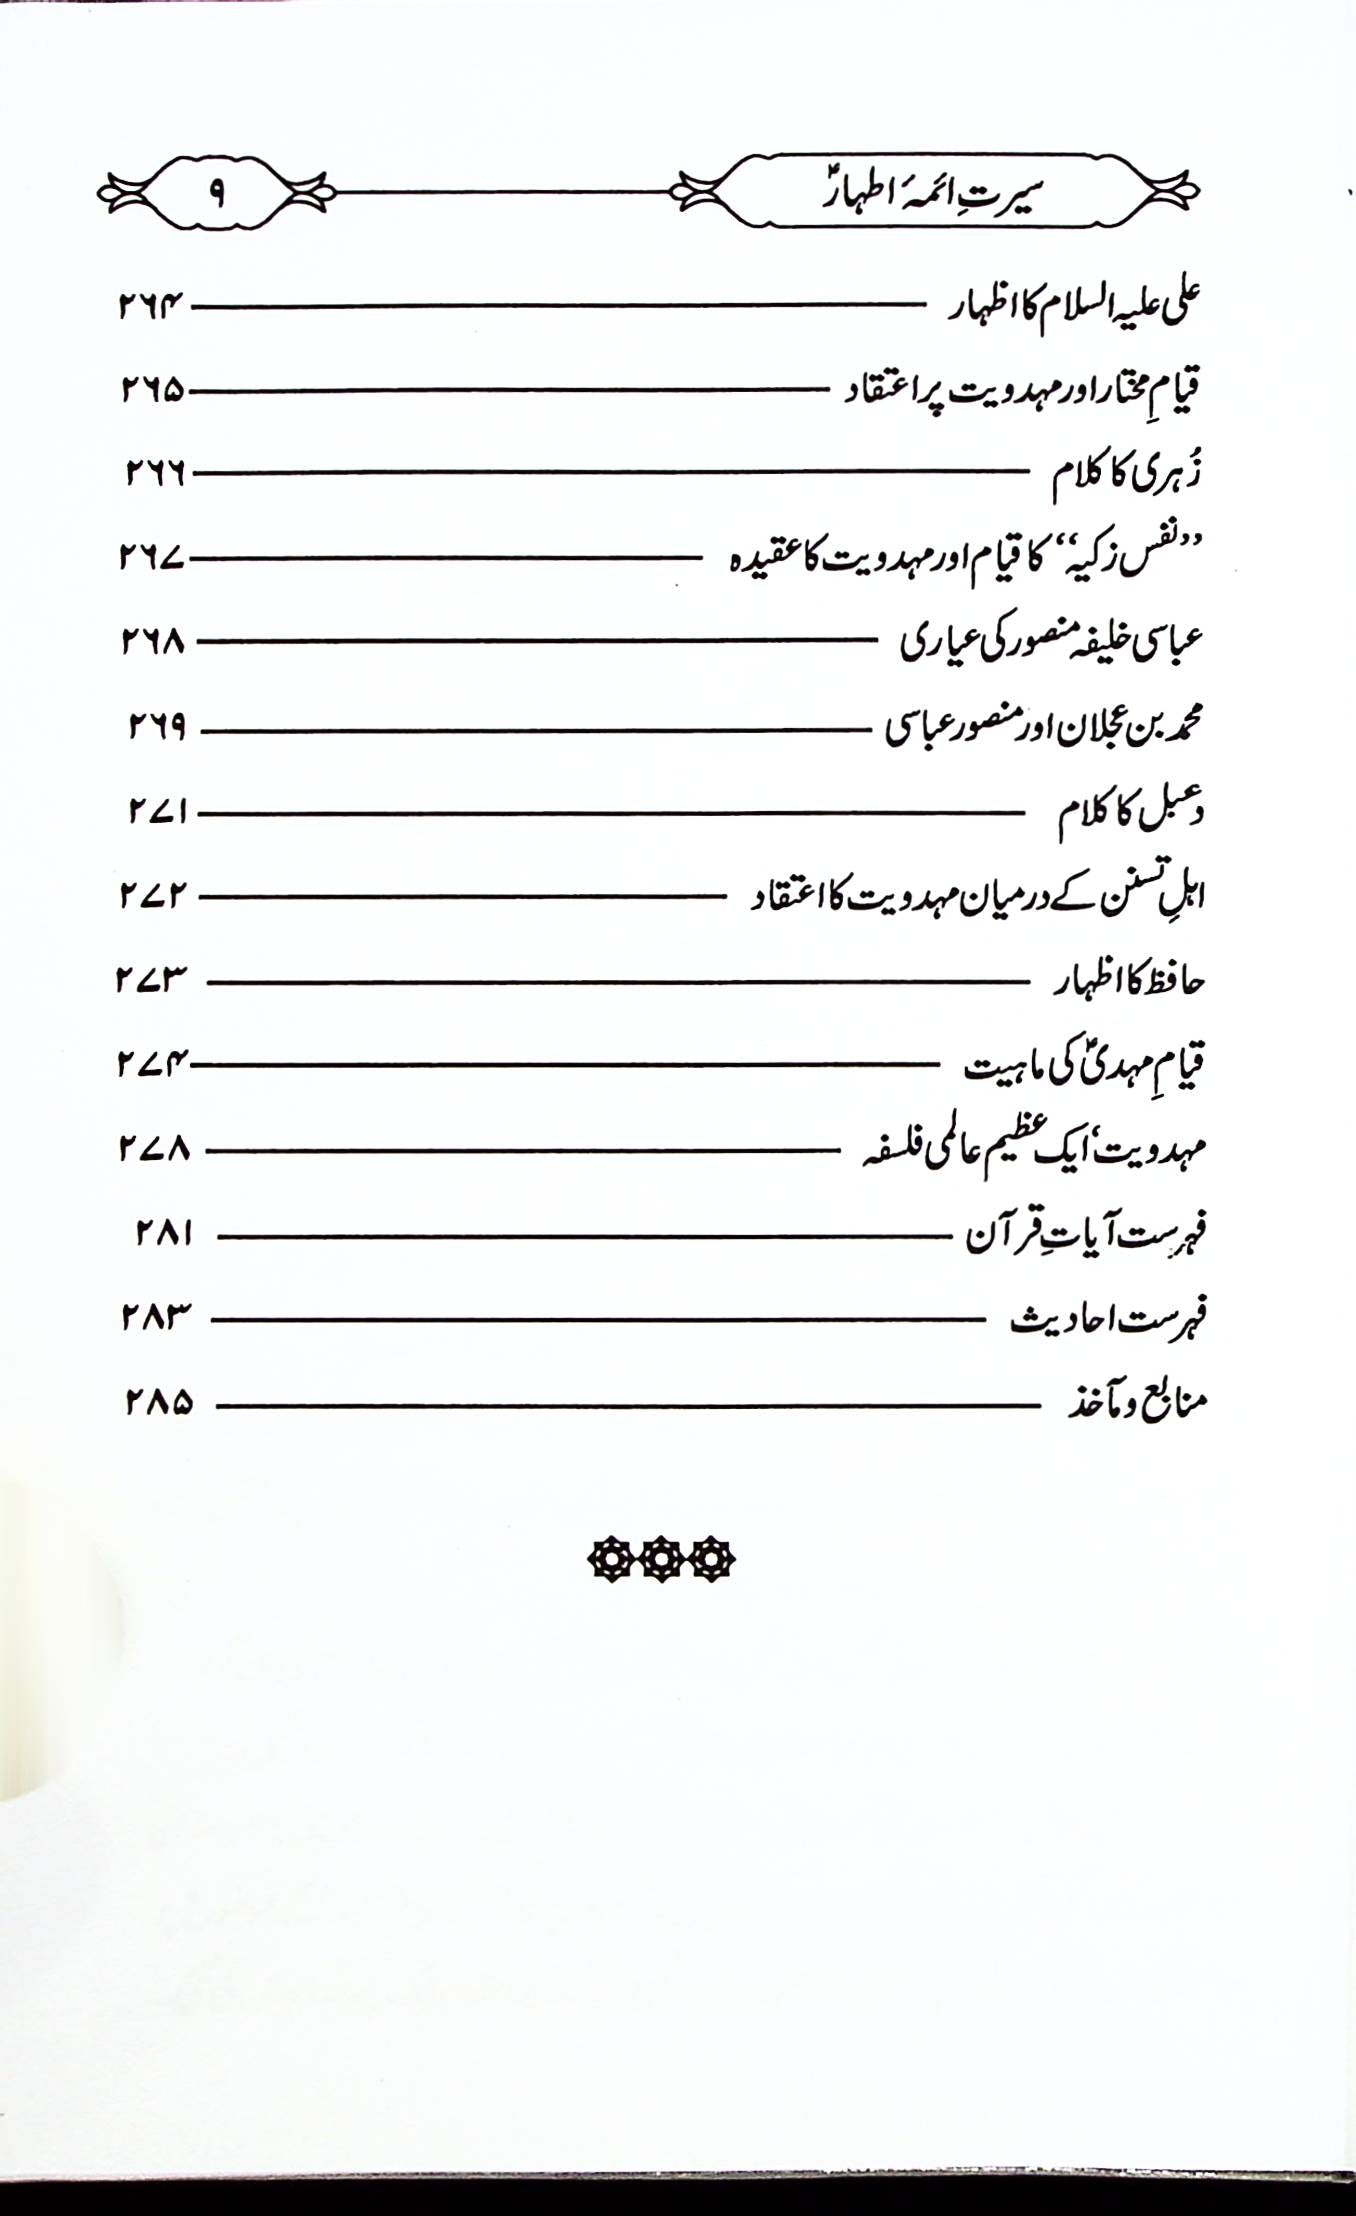 سیرتِ ائمۂ اطہارؑ ۹
علی علیہ السلام کا اظہار ۲۶۴
قیامِ مختار اور مہدویت پر اعتقاد ۲۶۵
زُہری کا کلام ۲۶۶
’’نفس زکیہ‘‘ کا قیام اور مہدویت کا عقیدہ ۲۶۷
عباسی خلیفہ منصور کی عیاری ۲۶۸
محمد بن عجلان اور منصور عباسی ۲۶۹
دعبل کا کلام ۲۷۱
اہلِ تسنن کے درمیان مہدویت کا اعتقاد ۲۷۲
حافظ کا اظہار ۲۷۳
قیامِ مہدیؑ کی ماہیت ۲۷۴
مہدویت‘ ایک عظیم عالمی فلسفہ ۲۷۸
فہرست آیاتِ قرآن ۲۸۱
فہرست احادیث ۲۸۳
منابع و مآخذ ۲۸۵